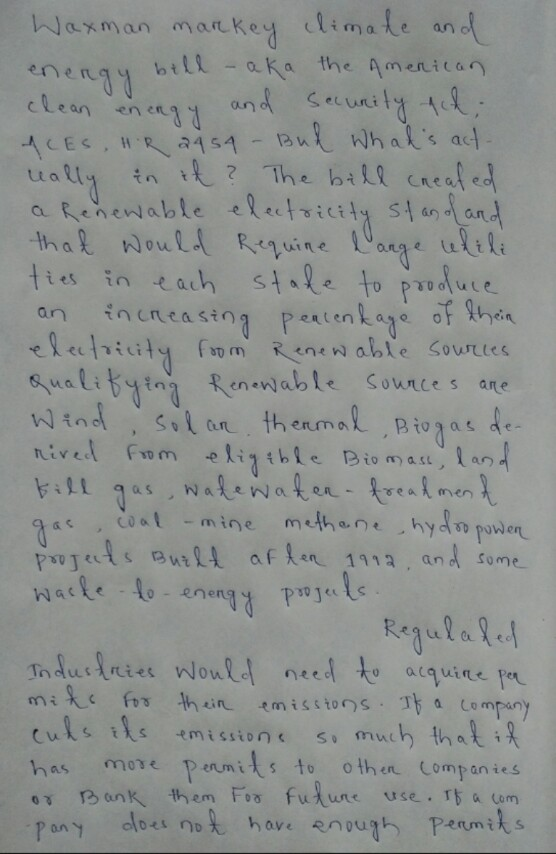 Waxman markey climate and
energy bill - aka the American
clean energy and security Act,
ACES, H.R 2454 - But What's act-
ually in it? The bill created
a Renewable electricity Standard
that would Require large utili
ties in each state to produce
an increasing percentage of their
electricity from Renewable sources
Qualifying Renewable sources are
Wind, solar, thermal, Biogas de-
rived from eligible Biomass, land
fill gas, watewater-treatment
gas, coal-mine methane, hydropower
projects Built after 1992, and some
waste-to-energy projects.
Regulated
Industries would need to acquire per
mits for their emissions. If a company
cuts its emissions so much that it
has more permits to other companies
or Bank them For future use. If a com
pany does not have enough permits